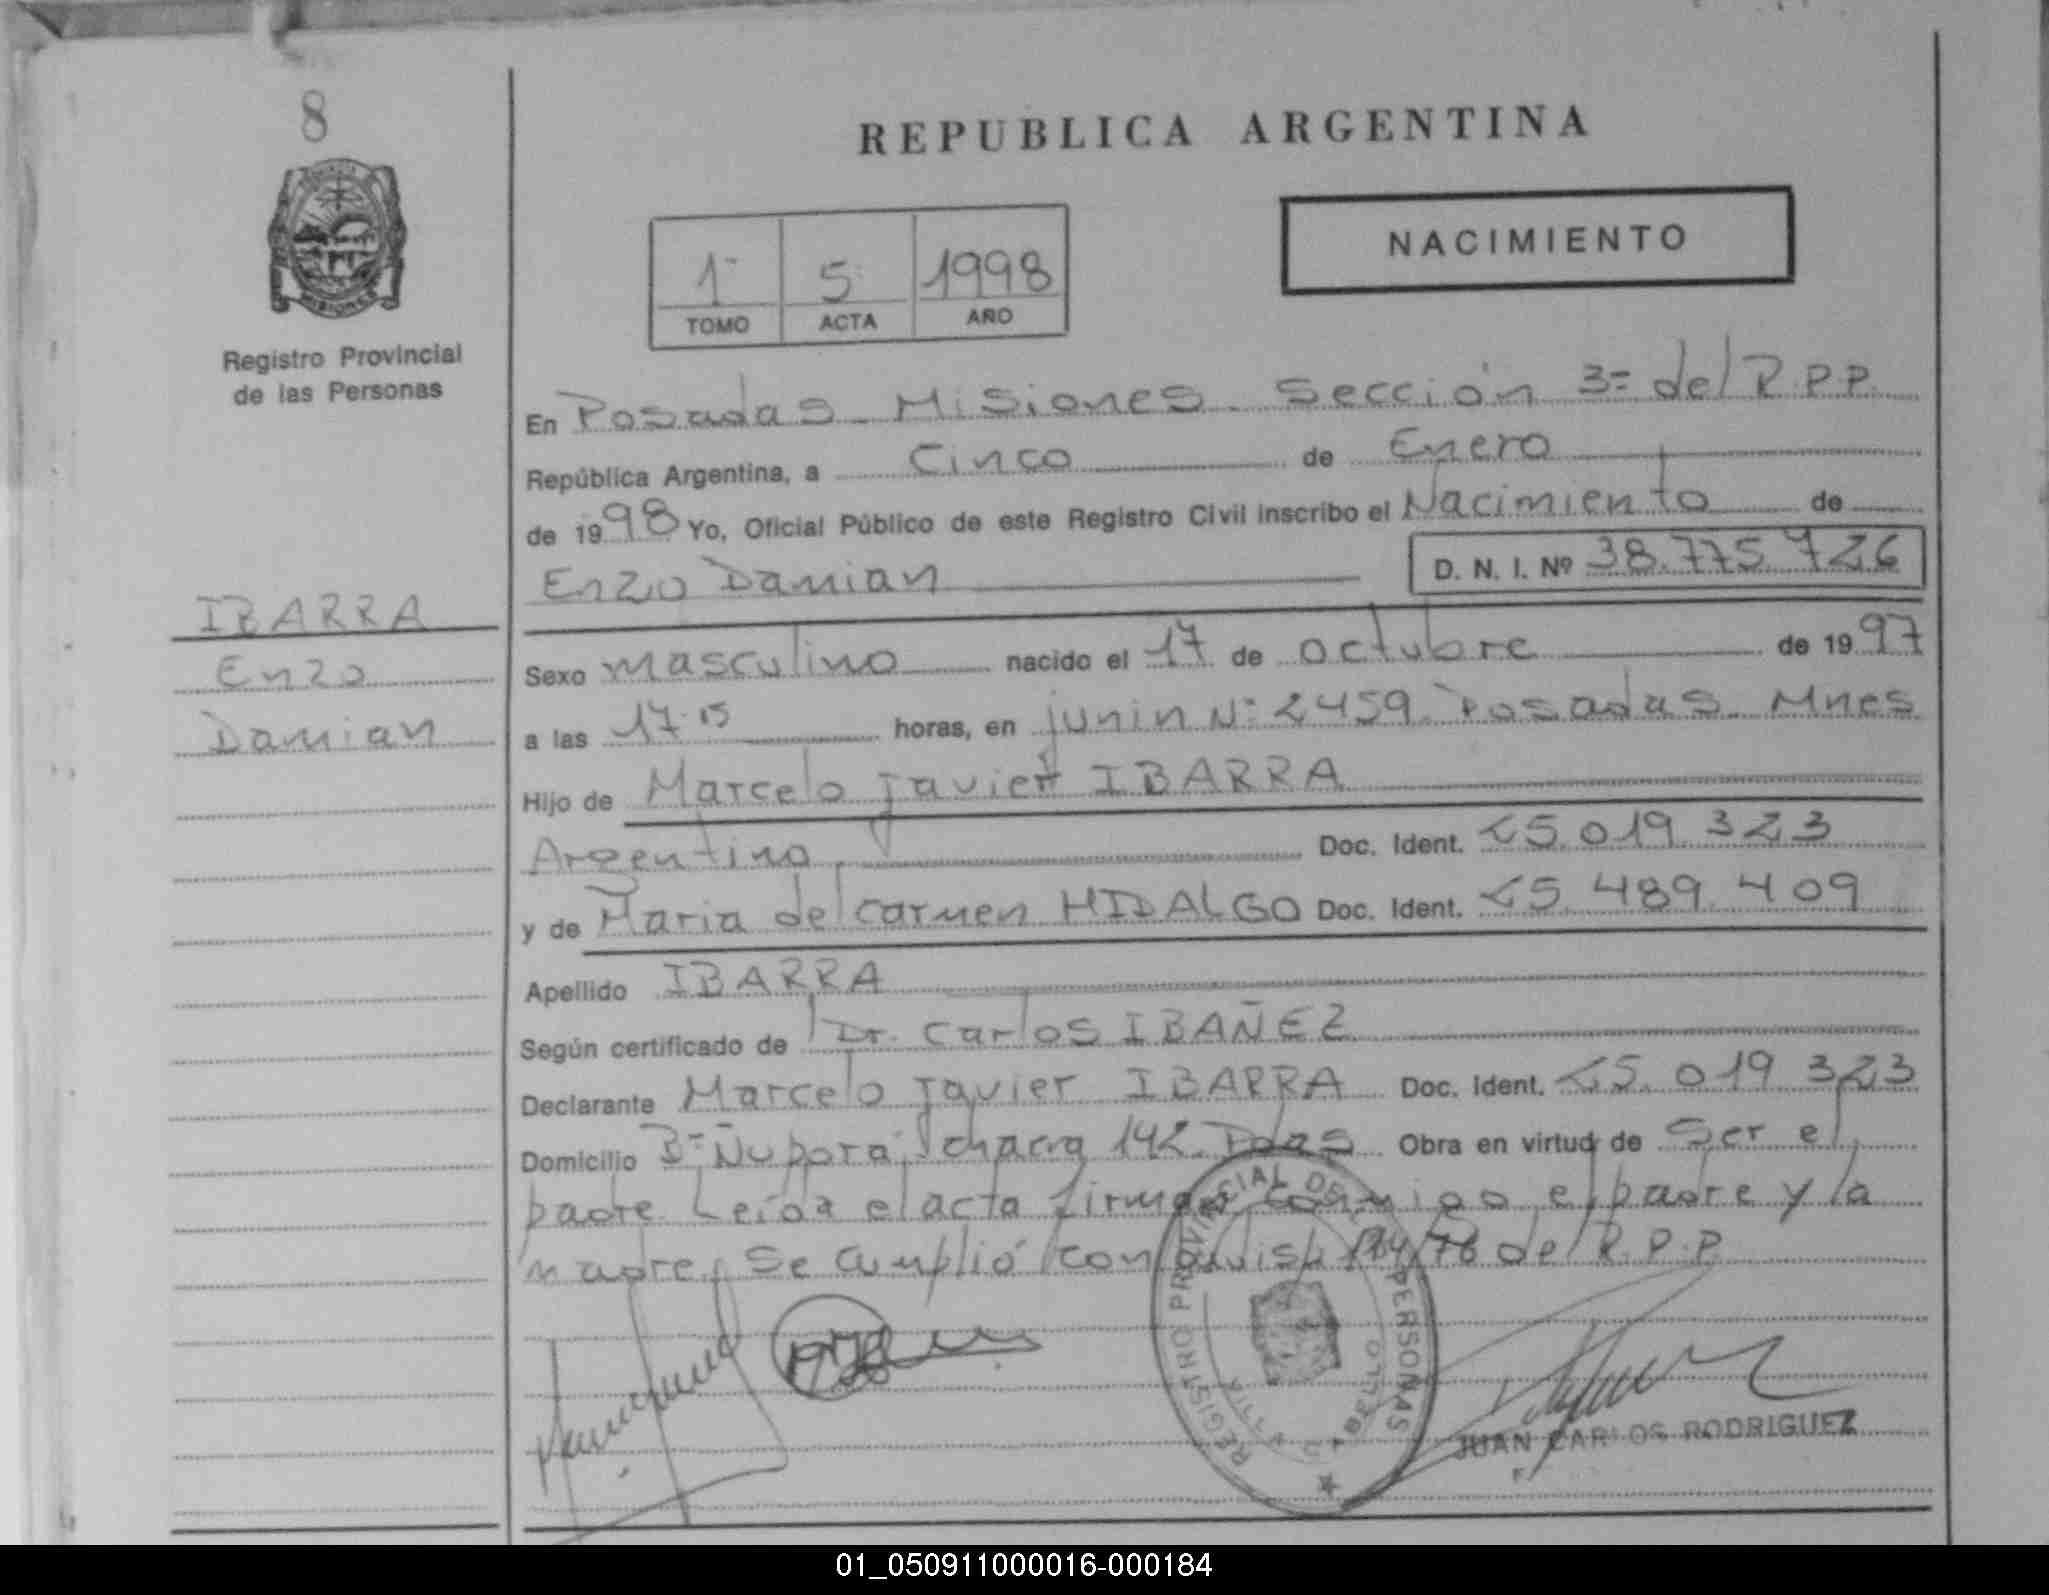 8
REPUBLICA ARGENTINA
NACIMIENTO
1- 5 1998
TOMO ACTA AÑO
MISIONES
Registro Provincial
de las Personas
En Posadas Misiones. Sección 3= del R.P.P.
República Argentina, a Cinco de Enero
de 1998 Yo, Oficial Público de este Registro Civil inscribo el Nacimiento de
Enzo Damian D. N. I. Nº 38.775.726
IBARRA
Enzo
Damian
Sexo masculino nacido el 17 de octubre de 1997
a las 17.15 horas, en junin Nº 2459. Posadas. Mnes
Hijo de Marcelo Javier IBARRA
Argentino. Doc. Ident. 25.019.323
y de Maria del carmen HIDALGO Doc. Ident. 25.489.409
Apellido IBARRA
Según certificado de Dr. Carlos IBAÑEZ
Declarante Marcelo Javier IBARRA Doc. Ident. 25.019.323
Domicilio Bº Ñu porá chacra 142. Pdas. Obra en virtud de Ser el
padre Leída el acta firman conmigo el padre y la
madre, Se cumplió con 76 del R.P.P
REGISTRO PROVINCIAL DE PERSONAS
VILLA CABELLO
JUAN CARLOS RODRIGUEZ
01_050911000016-000184